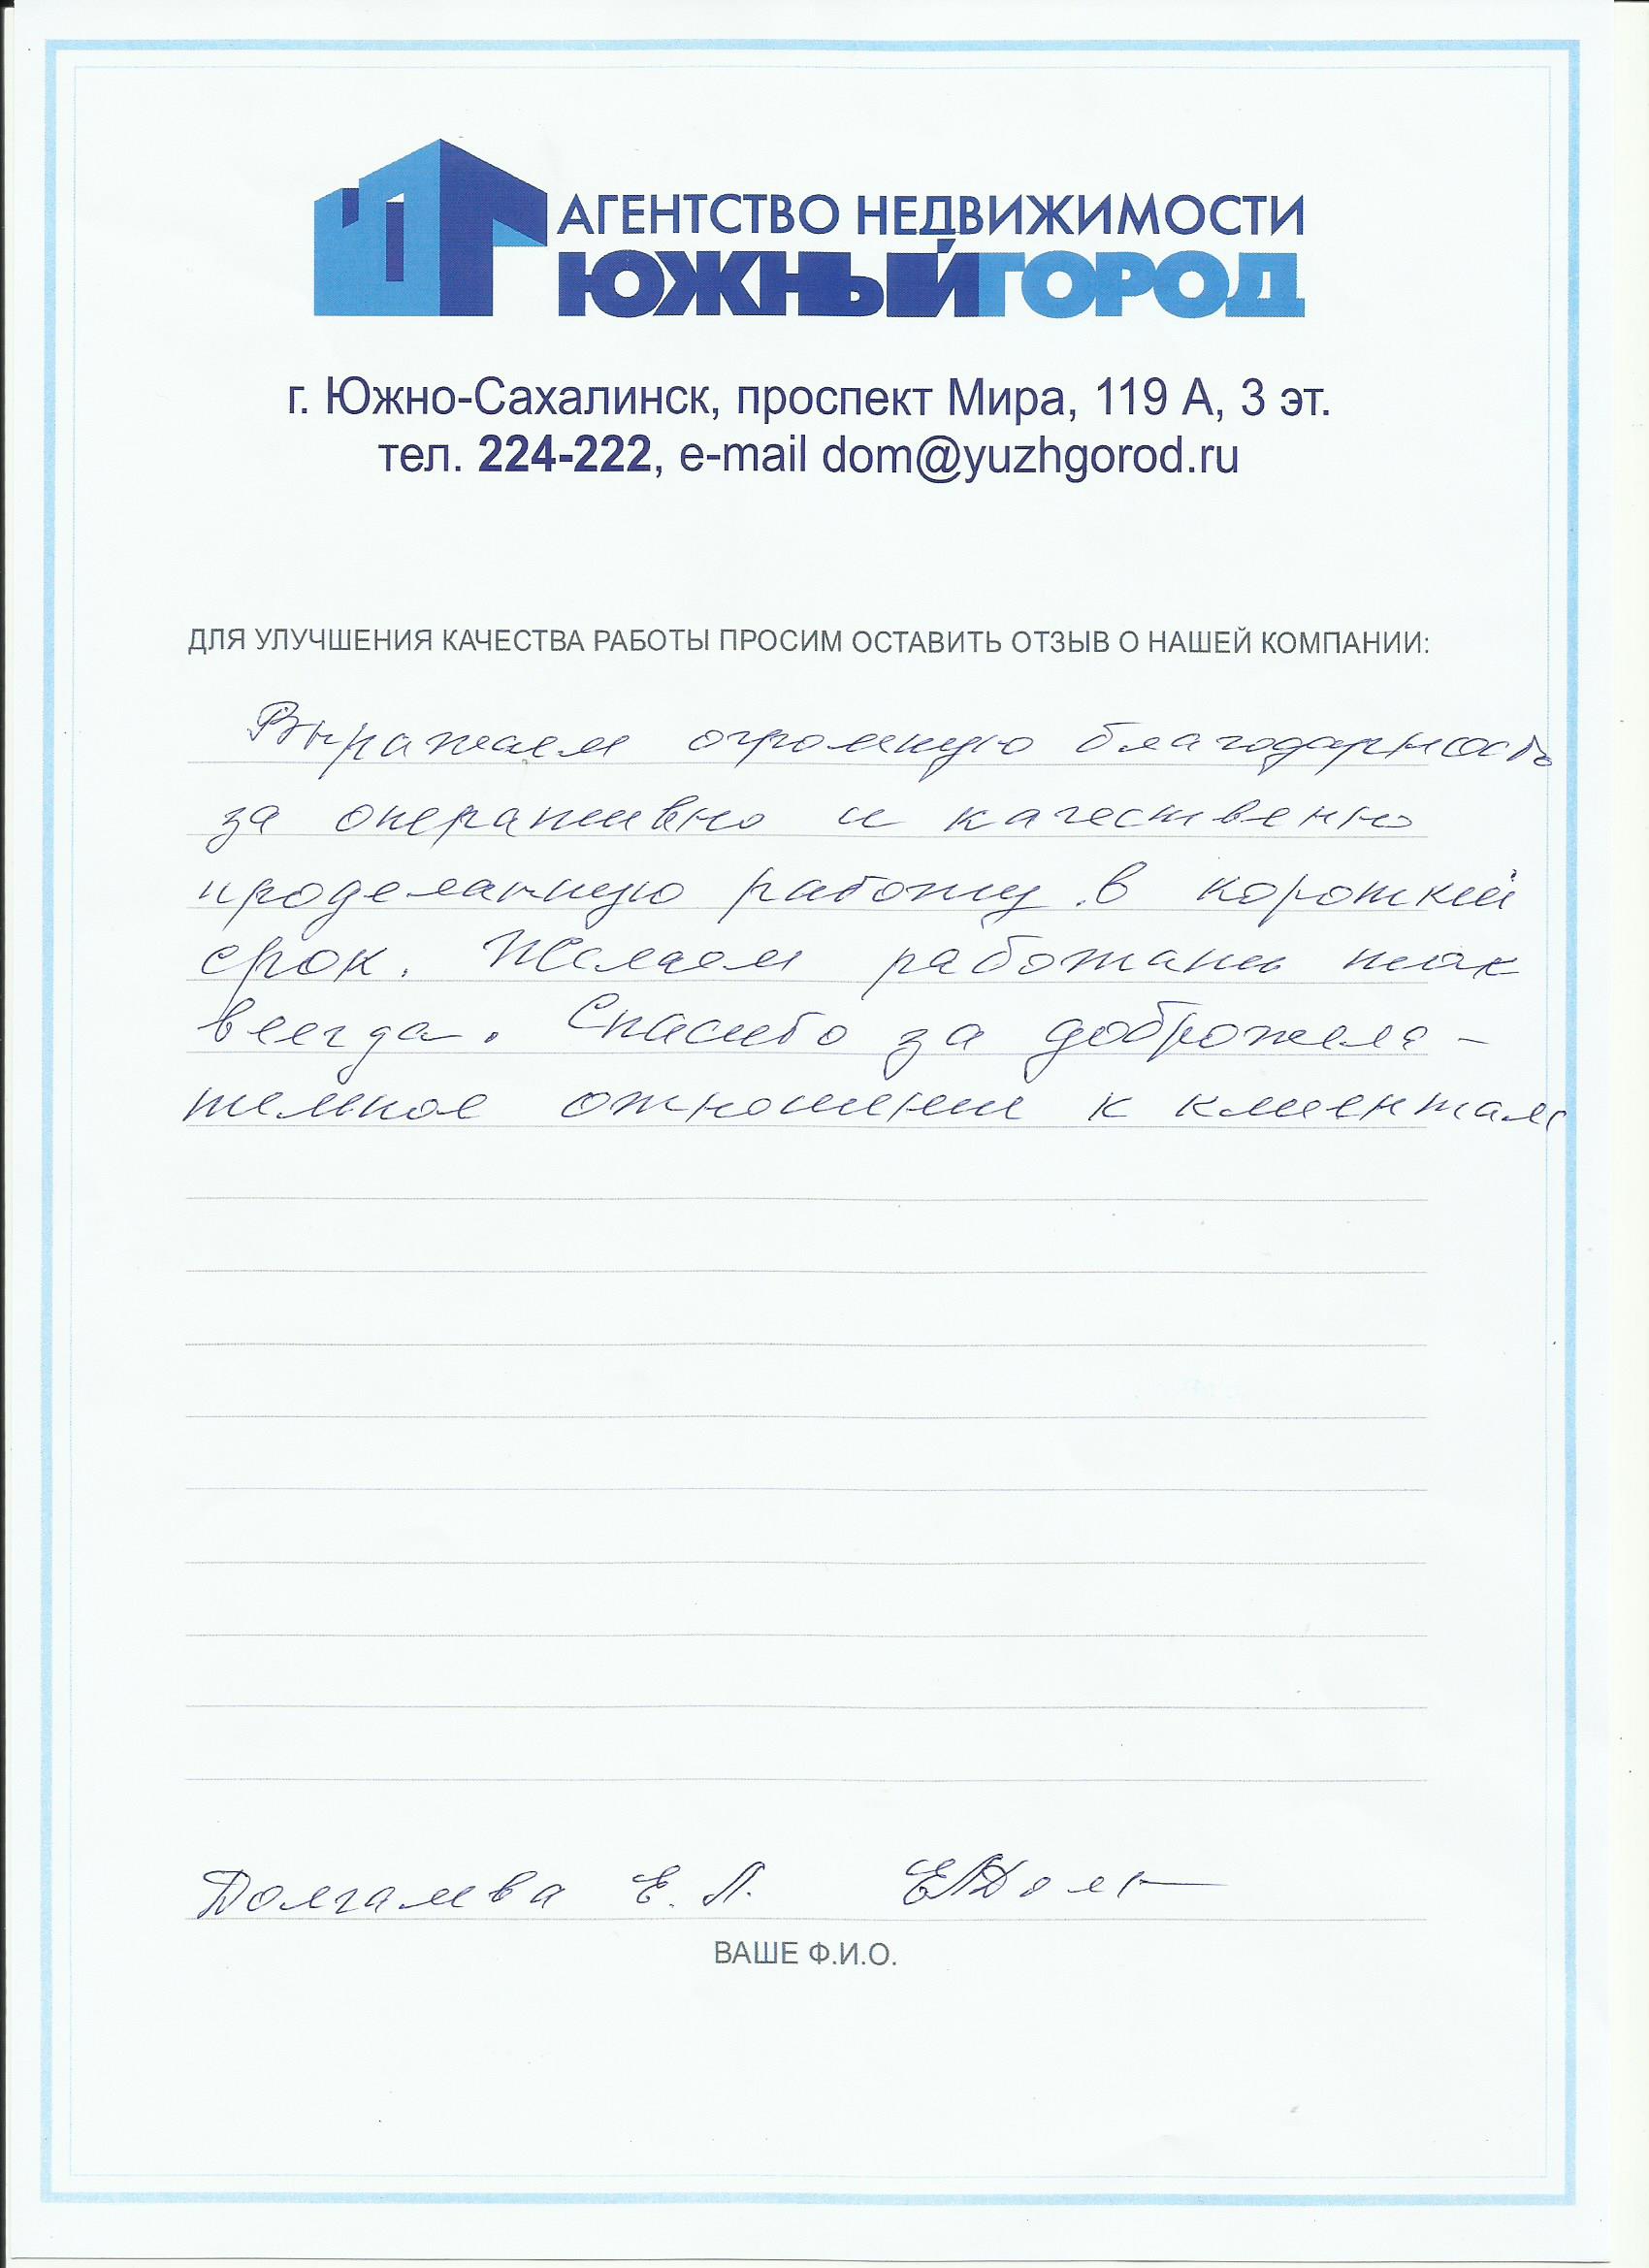 АГЕНТСТВО НЕДВИЖИМОСТИ
ЮЖНЫЙГОРОД
г. Южно-Сахалинск, проспект Мира, 119 А, 3 эт.
тел. 224-222, e-mail dom@yuzhgorod.ru
ДЛЯ УЛУЧШЕНИЯ КАЧЕСТВА РАБОТЫ ПРОСИМ ОСТАВИТЬ ОТЗЫВ О НАШЕЙ КОМПАНИИ:
Выражаем огромную благодарность
за оперативно и качественно
проделанную работу в короткий
срок. Желаем работать так
всегда. Спасибо за доброжела-
тельное отношение к клиентам
Е. Л.
ВАШЕ Ф.И.О.